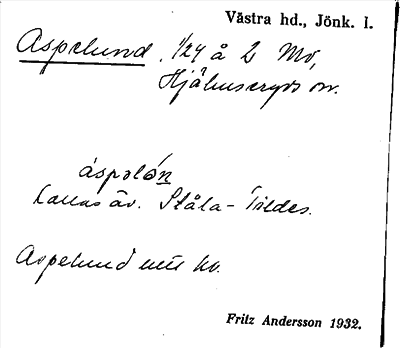 Västra hd., Jönk. l.
Aspelund, 1/24 å 2 Mo,
Hjälmseryds sn.
áspəlón
kallas äv. Ståla-Tildes.
Aspelund utu kv.
Fritz Andersson 1932.